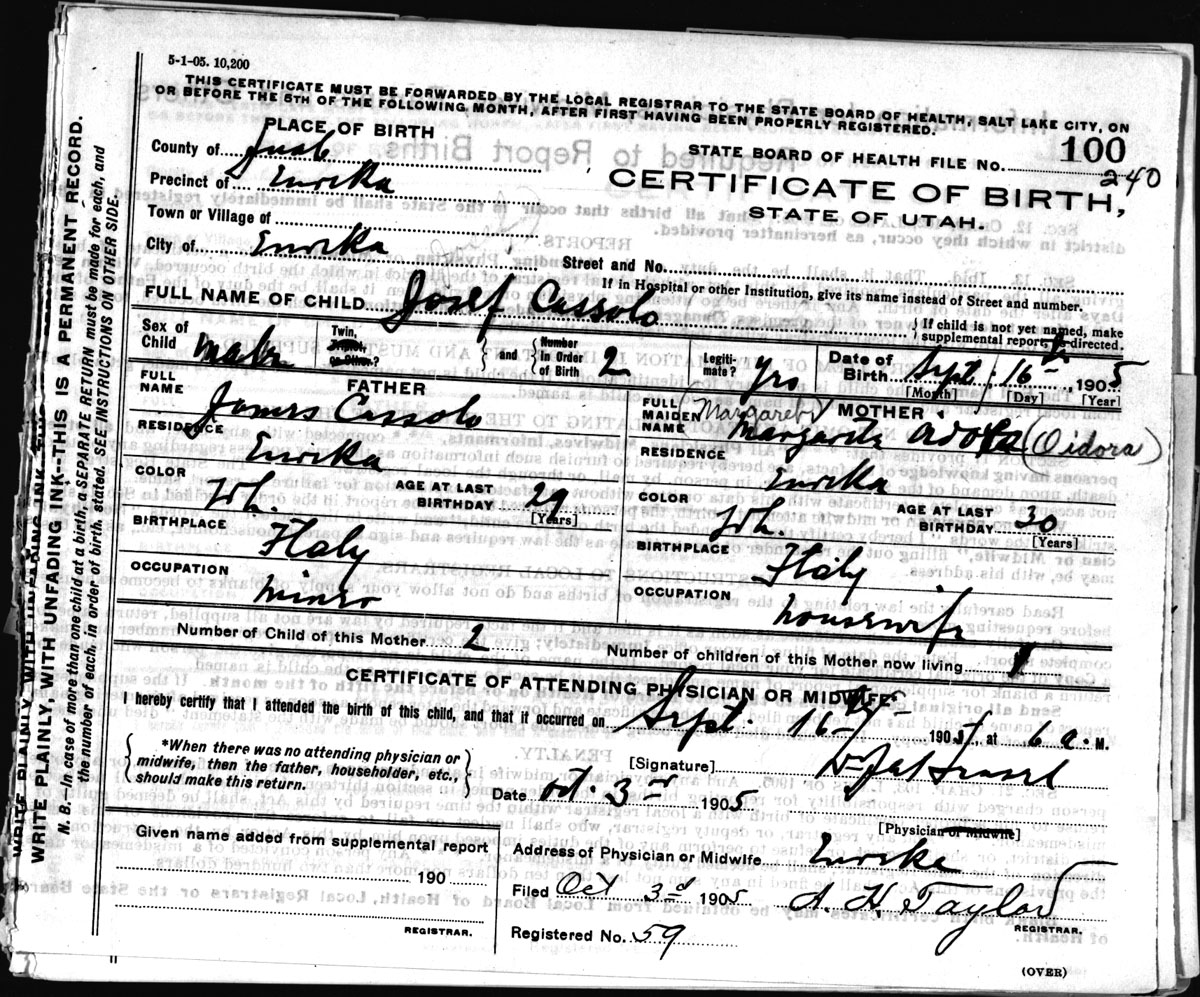 5-1-05. 10,200
THIS CERTIFICATE MUST BE FORWARDED BY THE LOCAL REGISTRAR TO THE STATE BOARD OF HEALTH, SALT LAKE CITY, ON
OR BEFORE THE 5TH OF THE FOLLOWING MONTH, AFTER FIRST HAVING BEEN PROPERLY REGISTERED.
PLACE OF BIRTH
STATE BOARD OF HEALTH FILE No. 100
240
County of Juab
CERTIFICATE OF BIRTH,
Precinct of Eureka
STATE OF UTAH.
Town or Village of
City of Eureka
Street and No.
If in Hospital or other Institution, give its name instead of Street and number.
FULL NAME OF CHILD Josef Cassolo
If child is not yet named, make
supplemental report, as directed.
Sex of
Child male
Twin,
Triplet,
or Other?
and
Number
in Order
of Birth 2
Legiti-
mate? yes
Date of
Birth Sept 16 1905
[Month] [Day] [Year]
FULL
NAME
FATHER
James Cassolo
FULL
MAIDEN
NAME
MOTHER
Margarita
(Oidora)
RESIDENCE
Eureka
RESIDENCE
Eureka
COLOR
Wh.
AGE AT LAST
BIRTHDAY 29
[Years]
COLOR
Wh.
AGE AT LAST
BIRTHDAY 30
[Years]
BIRTHPLACE
Italy
BIRTHPLACE
Italy
OCCUPATION
Miner
OCCUPATION
housewife
Number of Child of this Mother 2
Number of children of this Mother now living
CERTIFICATE OF ATTENDING PHYSICIAN OR MIDWIFE
I hereby certify that I attended the birth of this child, and that it occurred on Sept. 16 1905, at 6 a. M.
*When there was no attending physician or
midwife, then the father, householder, etc.,
should make this return.
[Signature]
Date Oct. 3rd 1905
[Physician or Midwife]
Given name added from supplemental report
190
REGISTRAR.
Address of Physician or Midwife Eureka
Filed Oct 3rd 1905 A. H. Taylor
REGISTRAR.
Registered No. 59
(OVER)
WRITE PLAINLY, WITH UNFADING INK--THIS IS A PERMANENT RECORD.
N. B.--In case of more than one child at a birth, a SEPARATE RETURN must be made for each, and
the number of each, in order of birth, stated. SEE INSTRUCTIONS ON OTHER SIDE.